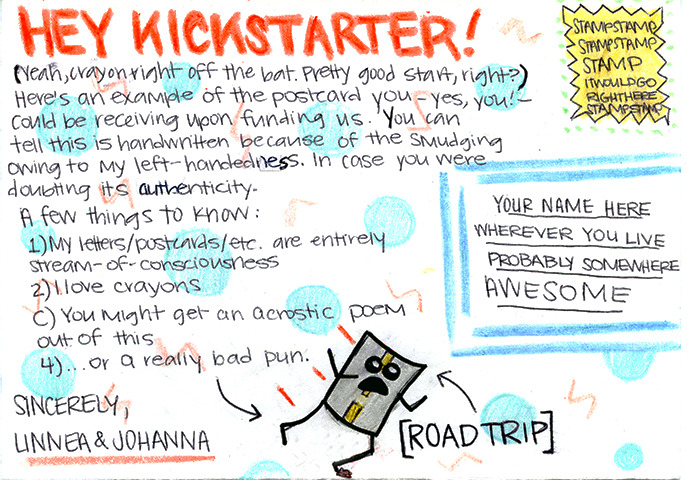 HEY KICKSTARTER!
(Yeah, crayon right off the bat. Pretty good start, right?)
Here's an example of the postcard you - yes, you! -
could be receiving upon funding us. You can
tell this is handwritten because of the smudging
owing to my left-handedness. In case you were
doubting its authenticity.
A few things to know:
1) My letters/postcards/etc. are entirely
stream-of-consciousness
2) I love crayons
C) You might get an acrostic poem
out of this
4) ...or a really bad pun.
SINCERELY,
LINNEA & JOHANNA
[ROAD TRIP]
STAMPSTAMP
STAMPSTAMP
STAMP
IT WOULD GO
RIGHT HERE
STAMPSTAMP
YOUR NAME HERE
WHEREVER YOU LIVE
PROBABLY SOMEWHERE
AWESOME